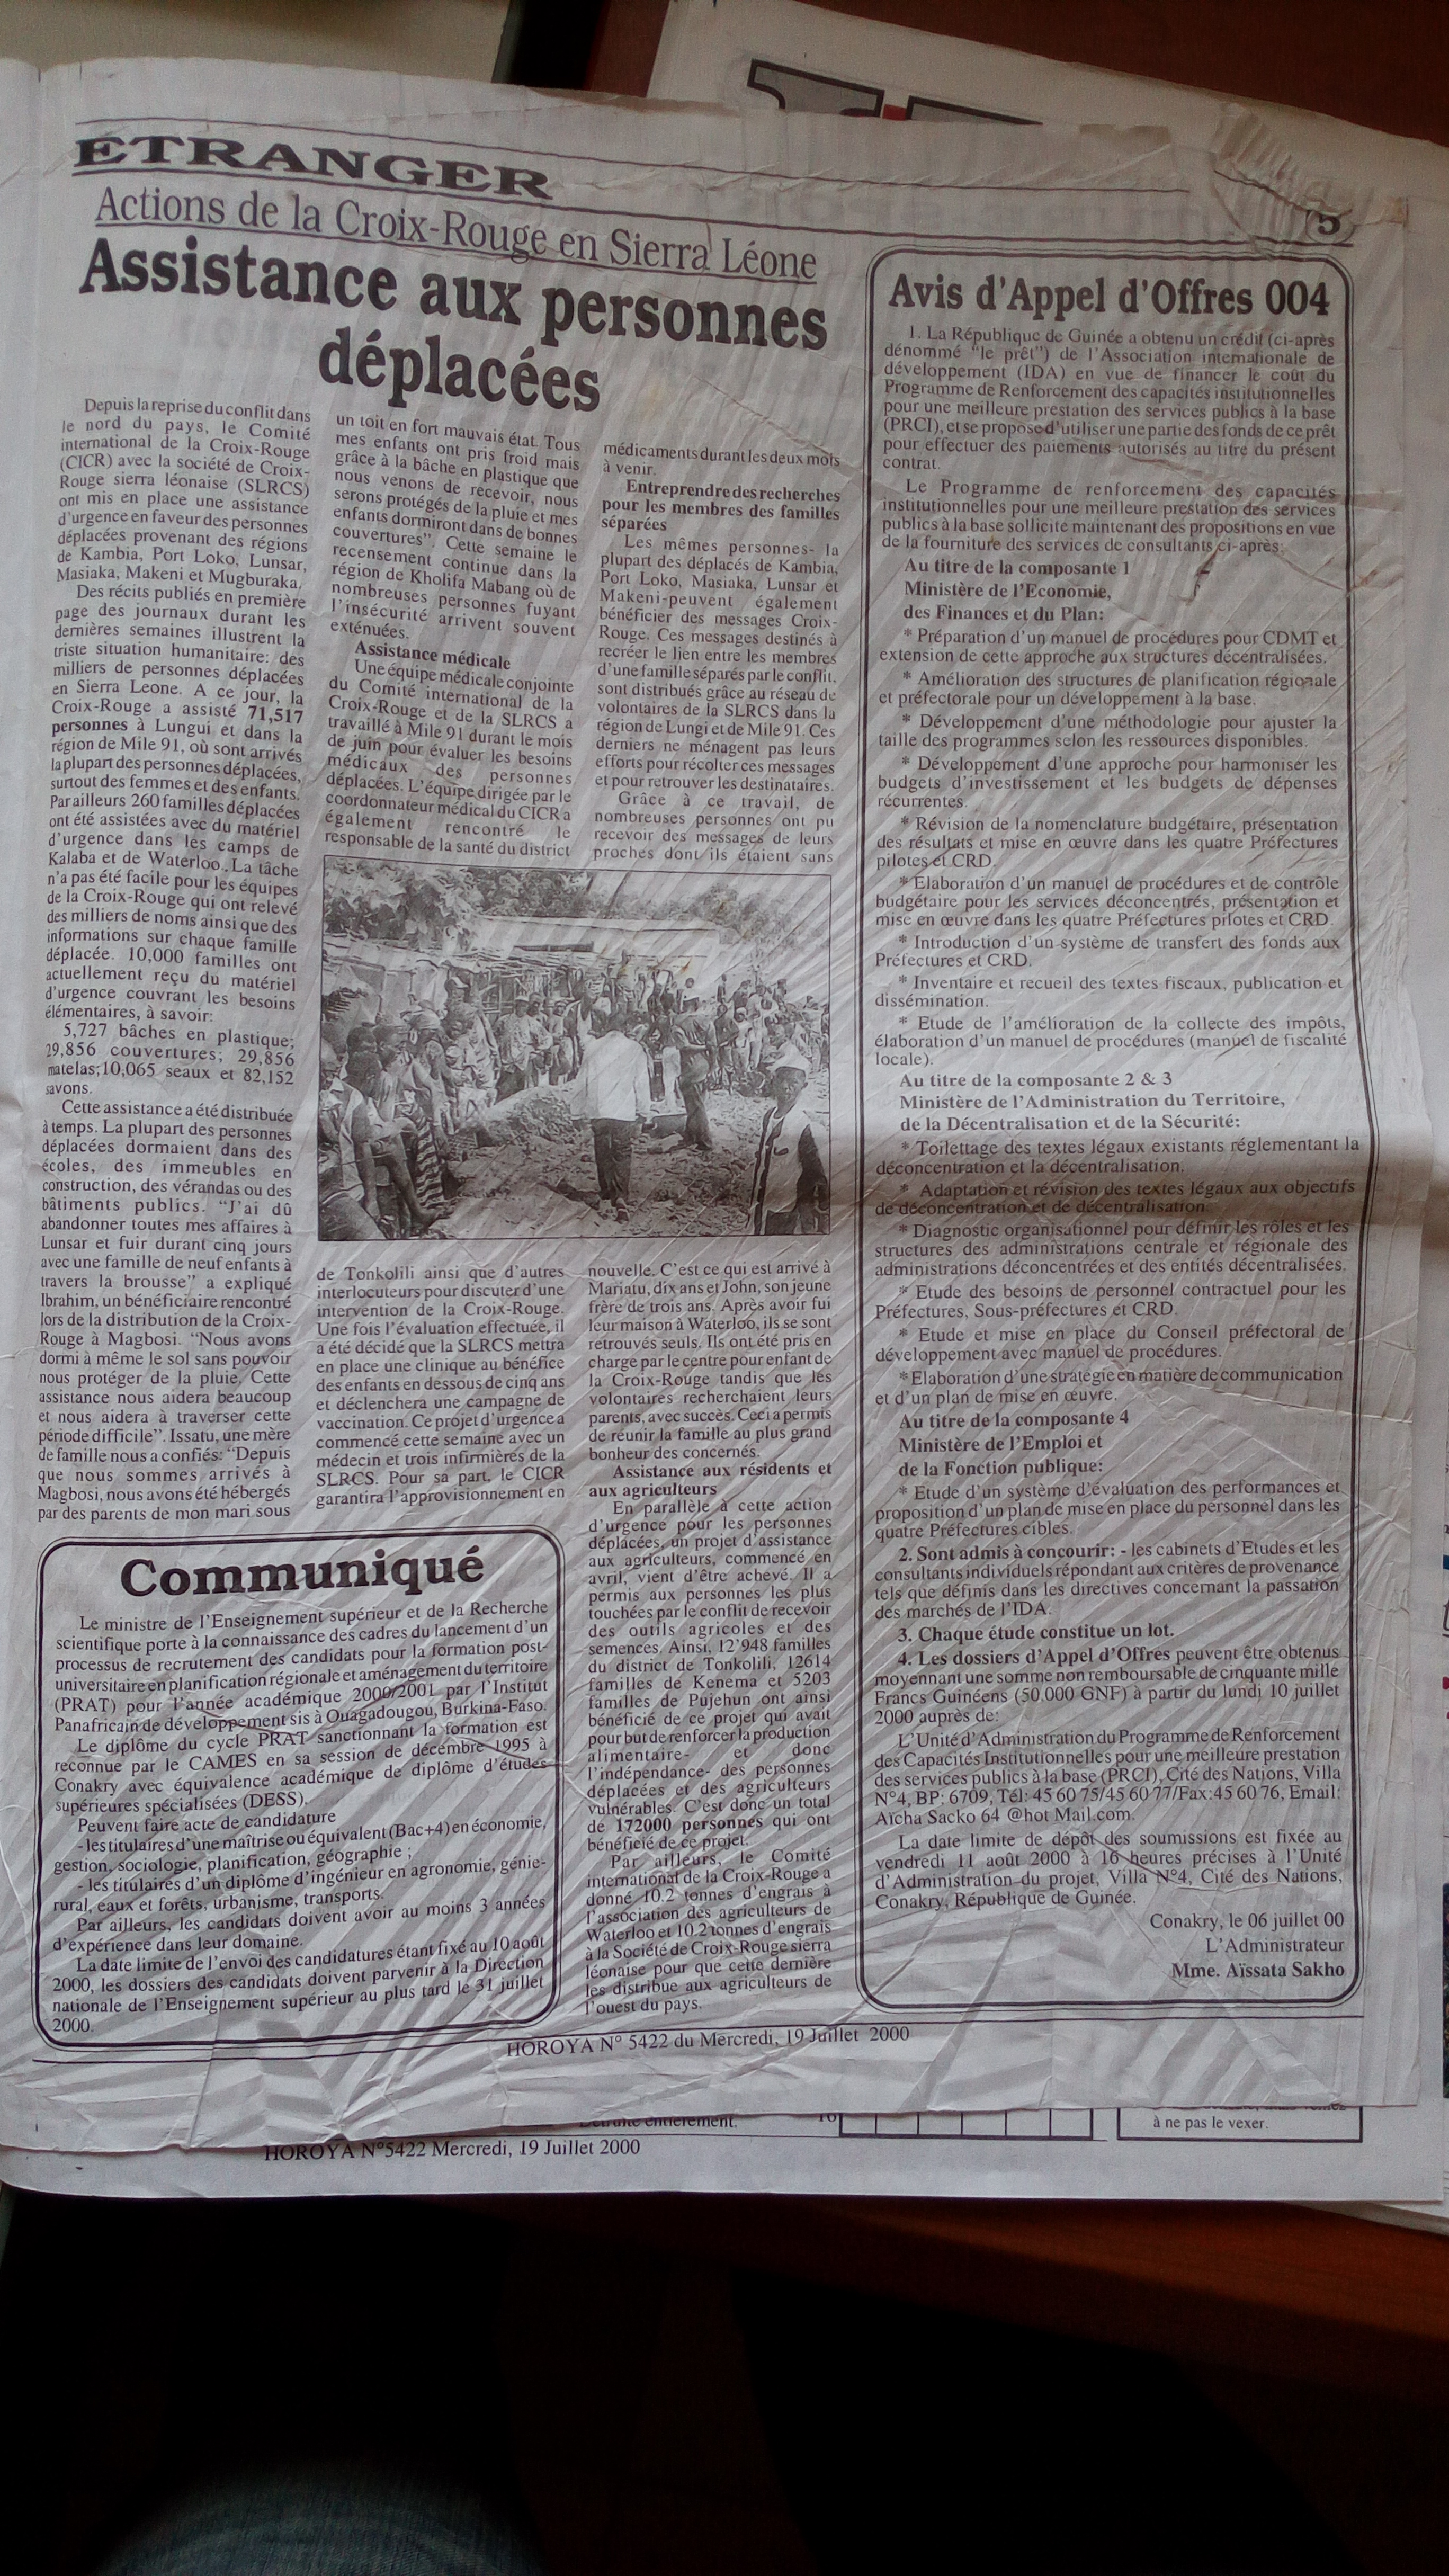 ETRANGER
5
Actions de la Croix-Rouge en Sierra Léone
Assistance aux personnes
déplacées
Depuis la reprise du conflit dans
le nord du pays, le Comité
international de la Croix-Rouge
(CICR) avec la société de Croix-
Rouge sierra léonaise (SLRCS)
ont mis en place une assistance
d'urgence en faveur des personnes
déplacées provenant des régions
de Kambia, Port Loko, Lunsar,
Masiaka, Makeni et Mugburaka.
Des récits publiés en première
page des journaux durant les
dernières semaines illustrent la
triste situation humanitaire: des
milliers de personnes déplacées
en Sierra Leone. A ce jour, la
Croix-Rouge a assisté 71,517
personnes à Lungui et dans la
région de Mile 91, où sont arrivés
la plupart des personnes déplacées,
surtout des femmes et des enfants.
Par ailleurs 260 familles déplacées
ont été assistées avec du matériel
d'urgence dans les camps de
Kalaba et de Waterloo. La tâche
n'a pas été facile pour les équipes
de la Croix-Rouge qui ont relevé
des milliers de noms ainsi que des
informations sur chaque famille
déplacée. 10,000 familles ont
actuellement reçu du matériel
d'urgence couvrant les besoins
élémentaires, à savoir:
5,727 bâches en plastique;
29,856 couvertures; 29,856
matelas;10,065 seaux et 82,152
savons.
Cette assistance a été distribuée
à temps. La plupart des personnes
déplacées dormaient dans des
écoles, des immeubles en
construction, des vérandas ou des
bâtiments publics. "J'ai dû
abandonner toutes mes affaires à
Lunsar et fuir durant cinq jours
avec une famille de neuf enfants à
travers la brousse" a expliqué
Ibrahim, un bénéficiaire rencontré
lors de la distribution de la Croix-
Rouge à Magbosi. "Nous avons
dormi à même le sol sans pouvoir
nous protéger de la pluie. Cette
assistance nous aidera beaucoup
et nous aidera à traverser cette
période difficile". Issatu, une mère
de famille nous a confiés: "Depuis
que nous sommes arrivés à
Magbosi, nous avons été hébergés
par des parents de mon mari sous
un toit en fort mauvais état. Tous
mes enfants ont pris froid mais
grâce à la bâche en plastique que
nous venons de recevoir, nous
serons protégés de la pluie et mes
enfants dormiront dans de bonnes
couvertures". Cette semaine le
recensement continue dans la
région de Kholifa Mabang où de
nombreuses personnes fuyant
l'insécurité arrivent souvent
exténuées.
Assistance médicale
Une équipe médicale conjointe
du Comité international de la
Croix-Rouge et de la SLRCS a
travaillé à Mile 91 durant le mois
de juin pour évaluer les besoins
médicaux des personnes
déplacées. L'équipe dirigée par le
coordonnateur médical du CICR a
également rencontré le
responsable de la santé du district
de Tonkolili ainsi que d'autres
interlocuteurs pour discuter d'une
intervention de la Croix-Rouge.
Une fois l'évaluation effectuée, il
a été décidé que la SLRCS mettra
en place une clinique au bénéfice
des enfants en dessous de cinq ans
et déclenchera une campagne de
vaccination. Ce projet d'urgence a
commencé cette semaine avec un
médecin et trois infirmières de la
SLRCS. Pour sa part, le CICR
garantira l'approvisionnement en
médicaments durant les deux mois
à venir.
Entreprendre des recherches
pour les membres des familles
séparées
Les mêmes personnes- la
plupart des déplacés de Kambia,
Port Loko, Masiaka, Lunsar et
Makeni-peuvent également
bénéficier des messages Croix-
Rouge. Ces messages destinés à
recréer le lien entre les membres
d'une famille séparés par le conflit,
sont distribués grâce au réseau de
volontaires de la SLRCS dans la
région de Lungi et de Mile 91. Ces
derniers ne ménagent pas leurs
efforts pour récolter ces messages
et pour retrouver les destinataires.
Grâce à ce travail, de
nombreuses personnes ont pu
recevoir des messages de leurs
proches dont ils étaient sans
nouvelle. C'est ce qui est arrivé à
Mariatu, dix ans et John, son jeune
frère de trois ans. Après avoir fui
leur maison à Waterloo, ils se sont
retrouvés seuls. Ils ont été pris en
charge par le centre pour enfant de
la Croix-Rouge tandis que les
volontaires recherchaient leurs
parents, avec succès. Ceci a permis
de réunir la famille au plus grand
bonheur des concernés.
Assistance aux résidents et
aux agriculteurs
En parallèle à cette action
d'urgence pour les personnes
déplacées, un projet d'assistance
aux agriculteurs, commencé en
avril, vient d'être achevé. Il a
permis aux personnes les plus
touchées par le conflit de recevoir
des outils agricoles et des
semences. Ainsi, 12'948 familles
du district de Tonkolili, 12614
familles de Kenema et 5203
familles de Pujehun ont ainsi
bénéficié de ce projet qui avait
pour but de renforcer la production
alimentaire- et donc
l'indépendance- des personnes
déplacées et des agriculteurs
vulnérables. C'est donc un total
de 172000 personnes qui ont
bénéficié de ce projet.
Par ailleurs, le Comité
international de la Croix-Rouge a
donné 10.2 tonnes d'engrais à
l'association des agriculteurs de
Waterloo et 10.2 tonnes d'engrais
à la Société de Croix-Rouge sierra
léonaise pour que cette dernière
les distribue aux agriculteurs de
l'ouest du pays.
Communiqué
Le ministre de l'Enseignement supérieur et de la Recherche
scientifique porte à la connaissance des cadres du lancement d'un
processus de recrutement des candidats pour la formation post-
universitaire en planification régionale et aménagement du territoire
(PRAT) pour l'année académique 2000/2001 par l'Institut
Panafricain de développement sis à Ouagadougou, Burkina-Faso.
Le diplôme du cycle PRAT sanctionnant la formation est
reconnue par le CAMES en sa session de décembre 1995 à
Conakry avec équivalence académique de diplôme d'études
supérieures spécialisées (DESS).
Peuvent faire acte de candidature
- les titulaires d'une maîtrise ou équivalent (Bac+4) en économie,
gestion, sociologie, planification, géographie ;
- les titulaires d'un diplôme d'ingénieur en agronomie, génie-
rural, eaux et forêts, urbanisme, transports.
Par ailleurs, les candidats doivent avoir au moins 3 années
d'expérience dans leur domaine.
La date limite de l'envoi des candidatures étant fixé au 10 août
2000, les dossiers des candidats doivent parvenir à la Direction
nationale de l'Enseignement supérieur au plus tard le 31 juillet
2000.
Avis d'Appel d'Offres 004
1. La République de Guinée a obtenu un crédit (ci-après
dénommé "le prêt") de l'Association internationale de
développement (IDA) en vue de financer le coût du
Programme de Renforcement des capacités institutionnelles
pour une meilleure prestation des services publics à la base
(PRCI), et se propose d'utiliser une partie des fonds de ce prêt
pour effectuer des paiements autorisés au titre du présent
contrat.
Le Programme de renforcement des capacités
institutionnelles pour une meilleure prestation des services
publics à la base sollicite maintenant des propositions en vue
de la fourniture des services de consultants ci-après:
Au titre de la composante 1
Ministère de l'Economie,
des Finances et du Plan:
* Préparation d'un manuel de procédures pour CDMT et
extension de cette approche aux structures décentralisées.
* Amélioration des structures de planification régionale
et préfectorale pour un développement à la base.
* Développement d'une méthodologie pour ajuster la
taille des programmes selon les ressources disponibles.
* Développement d'une approche pour harmoniser les
budgets d'investissement et les budgets de dépenses
récurrentes.
* Révision de la nomenclature budgétaire, présentation
des résultats et mise en œuvre dans les quatre Préfectures
pilotes et CRD.
* Elaboration d'un manuel de procédures et de contrôle
budgétaire pour les services déconcentrés, présentation et
mise en œuvre dans les quatre Préfectures pilotes et CRD.
* Introduction d'un système de transfert des fonds aux
Préfectures et CRD.
* Inventaire et recueil des textes fiscaux, publication et
dissémination.
* Etude de l'amélioration de la collecte des impôts,
élaboration d'un manuel de procédures (manuel de fiscalité
locale).
Au titre de la composante 2 & 3
Ministère de l'Administration du Territoire,
de la Décentralisation et de la Sécurité:
* Toilettage des textes légaux existants réglementant la
déconcentration et la décentralisation.
* Adaptation et révision des textes légaux aux objectifs
de déconcentration et de décentralisation.
* Diagnostic organisationnel pour définir les rôles et les
structures des administrations centrale et régionale des
administrations déconcentrées et des entités décentralisées.
* Etude des besoins de personnel contractuel pour les
Préfectures, Sous-préfectures et CRD.
* Etude et mise en place du Conseil préfectoral de
développement avec manuel de procédures.
* Elaboration d'une stratégie en matière de communication
et d'un plan de mise en œuvre.
Au titre de la composante 4
Ministère de l'Emploi et
de la Fonction publique:
* Etude d'un système d'évaluation des performances et
proposition d'un plan de mise en place du personnel dans les
quatre Préfectures cibles.
2. Sont admis à concourir: - les cabinets d'Etudes et les
consultants individuels répondant aux critères de provenance
tels que définis dans les directives concernant la passation
des marchés de l'IDA.
3. Chaque étude constitue un lot.
4. Les dossiers d'Appel d'Offres peuvent être obtenus
moyennant une somme non remboursable de cinquante mille
Francs Guinéens (50.000 GNF) à partir du lundi 10 juillet
2000 auprès de:
L'Unité d'Administration du Programme de Renforcement
des Capacités Institutionnelles pour une meilleure prestation
des services publics à la base (PRCI), Cité des Nations, Villa
N°4, BP: 6709, Tél: 45 60 75/45 60 77/Fax:45 60 76, Email:
Aïcha Sacko 64 @hot Mail.com.
La date limite de dépôt des soumissions est fixée au
vendredi 11 août 2000 à 16 heures précises à l'Unité
d'Administration du projet, Villa N°4, Cité des Nations,
Conakry, République de Guinée.
Conakry, le 06 juillet 00
L'Administrateur
Mme. Aïssata Sakho
HOROYA N° 5422 du Mercredi, 19 Juillet 2000
entièrement.
10
à ne pas le vexer.
HOROYA N°5422 Mercredi, 19 Juillet 2000